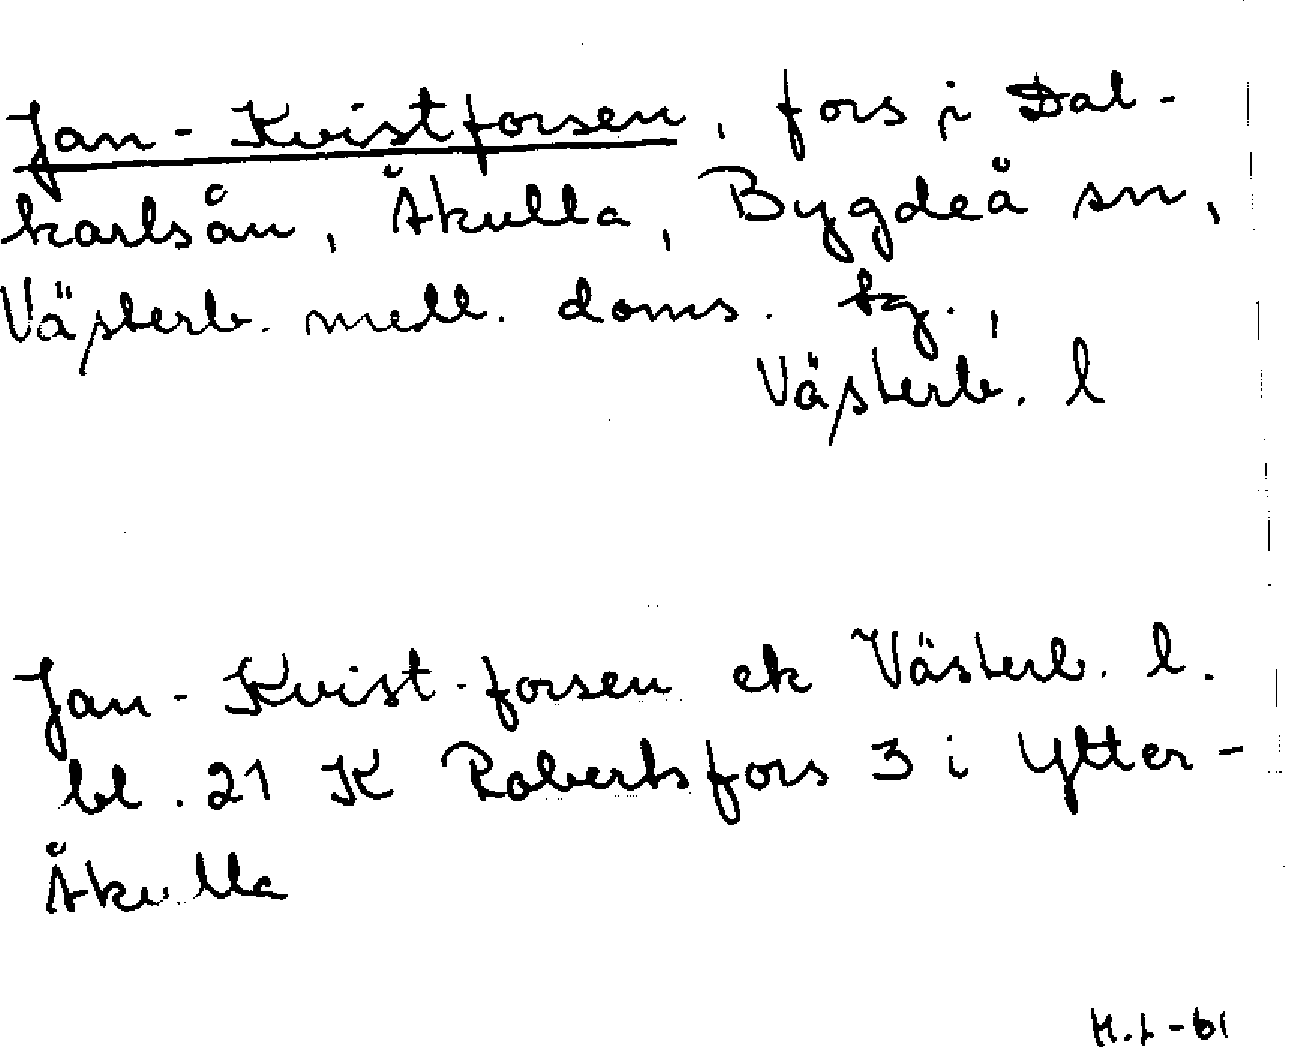 Jan-Kvistforsen, fors i Dal-
karlsån, Åkulla, Bygdeå sn,
Västerb. mell. doms. tg.,
Västerb. l
Jan-Kvist-forsen ek Västerb. l.
bl. 21 K Robertsfors 3 i Ytter-
Åkulla
H.L-61